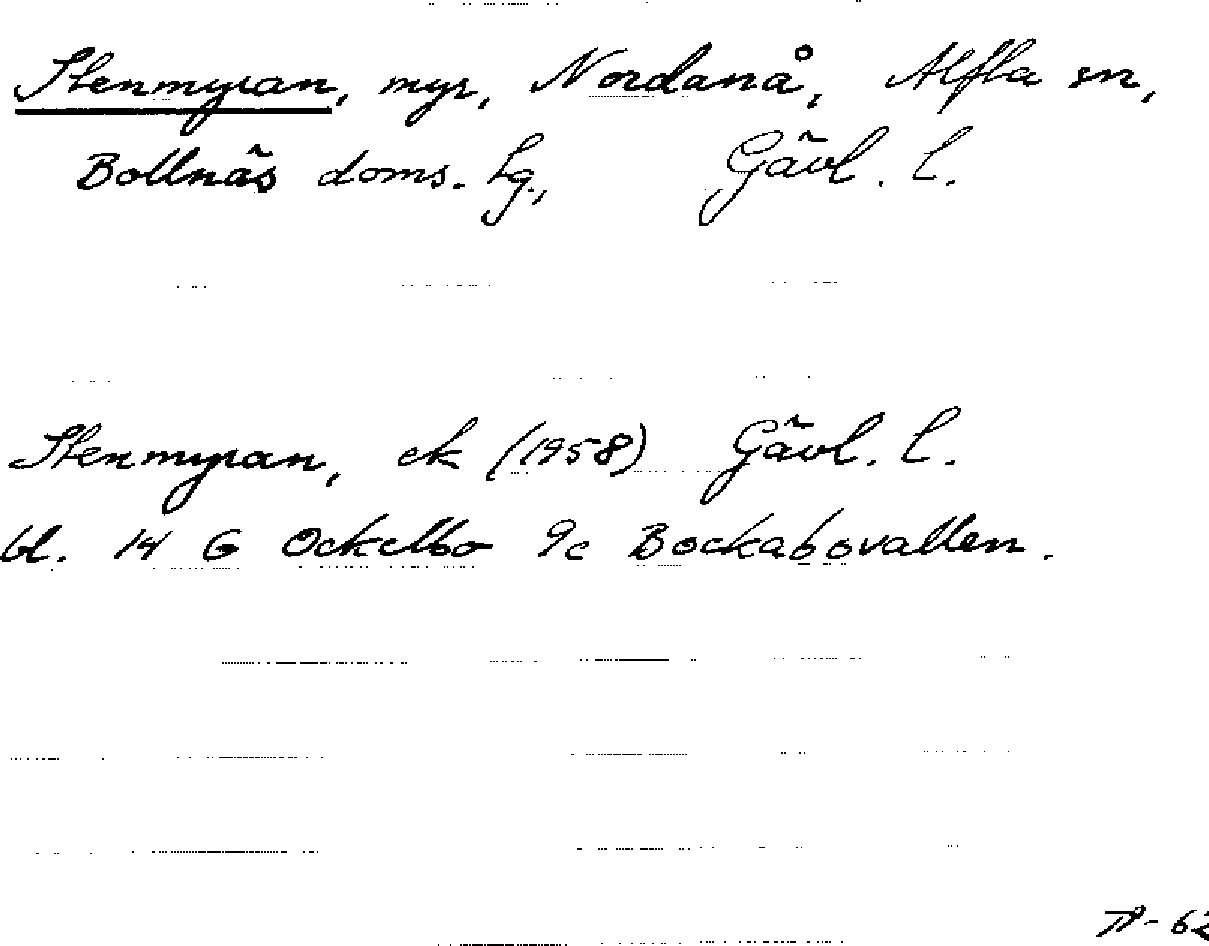 Stenmyran, myr, Nordanå, Alfta sn,
Bollnäs doms. hg, Gävl. l.
Stenmyran, ek (1958) Gävl. l.
bl. 14 G Ockelbo 9c Bockabovallen.